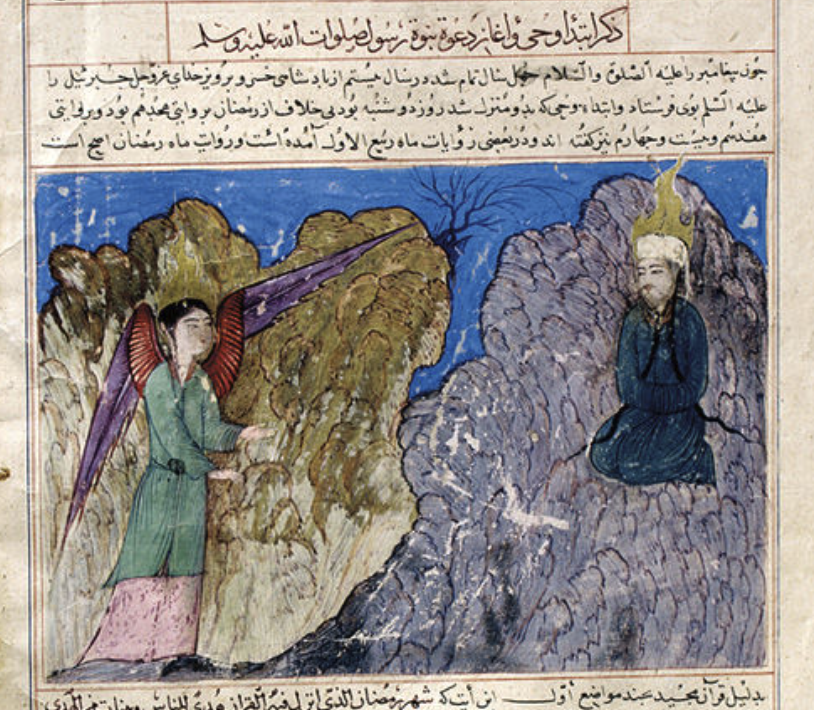 ذکر ابتداء وحی و اغاز دعوة نبوة رسول صلوات الله علیه وسلم
چون پیغامبر را علیه الصلوة والسلام چهل سال تمام شد در سال بیستم از پادشاهی خسرو پرویز خدای عزوجل جبرئیل را
علیه السلم بوی فرستاد وابتداء وحی که بدو منزل شد روز دوشنبه بود بی خلاف از رمضان بروایتی هجدهم بود و بروایتی
هفدهم وبیست وچهارم نیز گفته اند ودر بعضی روایات ماه ربیع الاول آمده است وروایت ماه رمضان اصح است
بدلیل قرآن مجید بچند مواضع اول این آیت که شهر رمضان الذی انزل فیه القرآن هدی للناس وبینات من الهدی